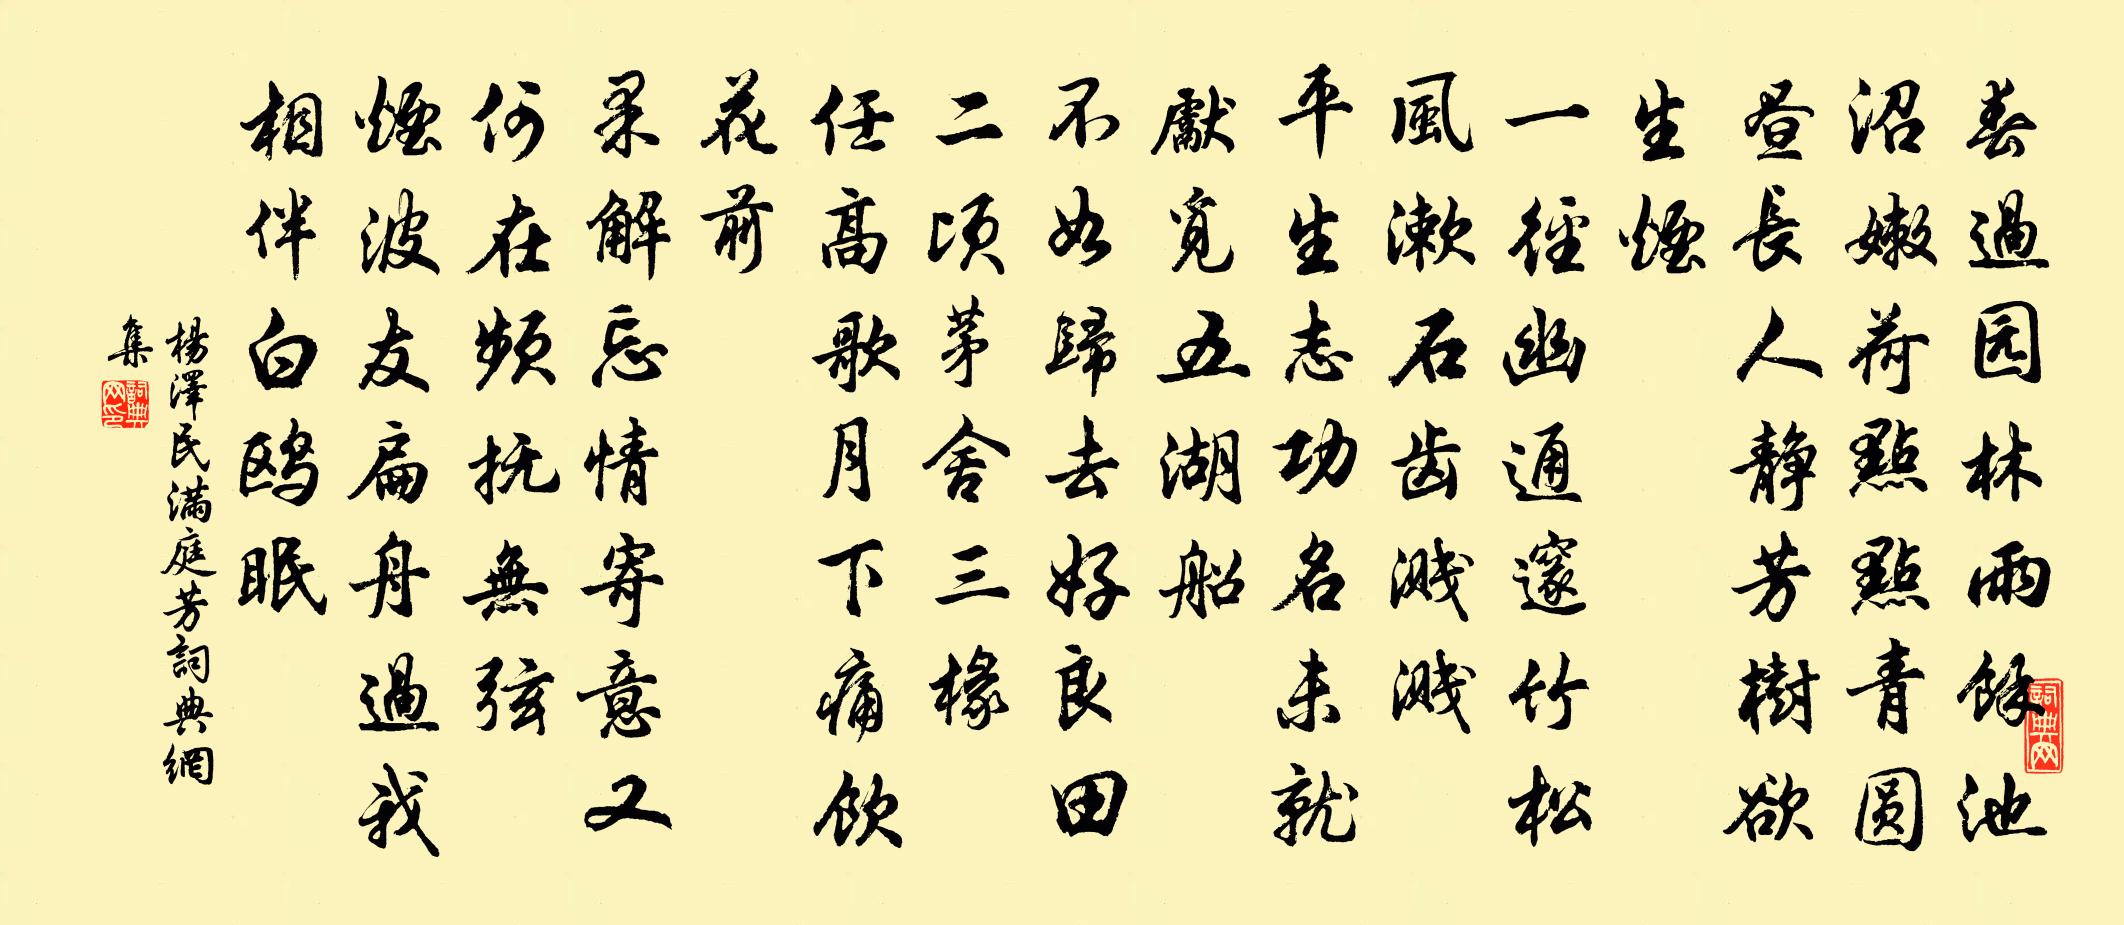 春過园林雨餘池
沼嫩荷點點青圆
昼長人静芳樹欲
生煙
一径幽通邃竹松
風漱石齿溅溅
平生志功名未就
獻覓五湖船
不如歸去好良田
二顷茅舍三椽
任高歌月下痛饮
花前
果解忘情寄意又
何在频抚無弦
煙波友扁舟過我
相伴白鸥眠
楊澤民满庭芳詞典網
集
詞典网
詞典网印